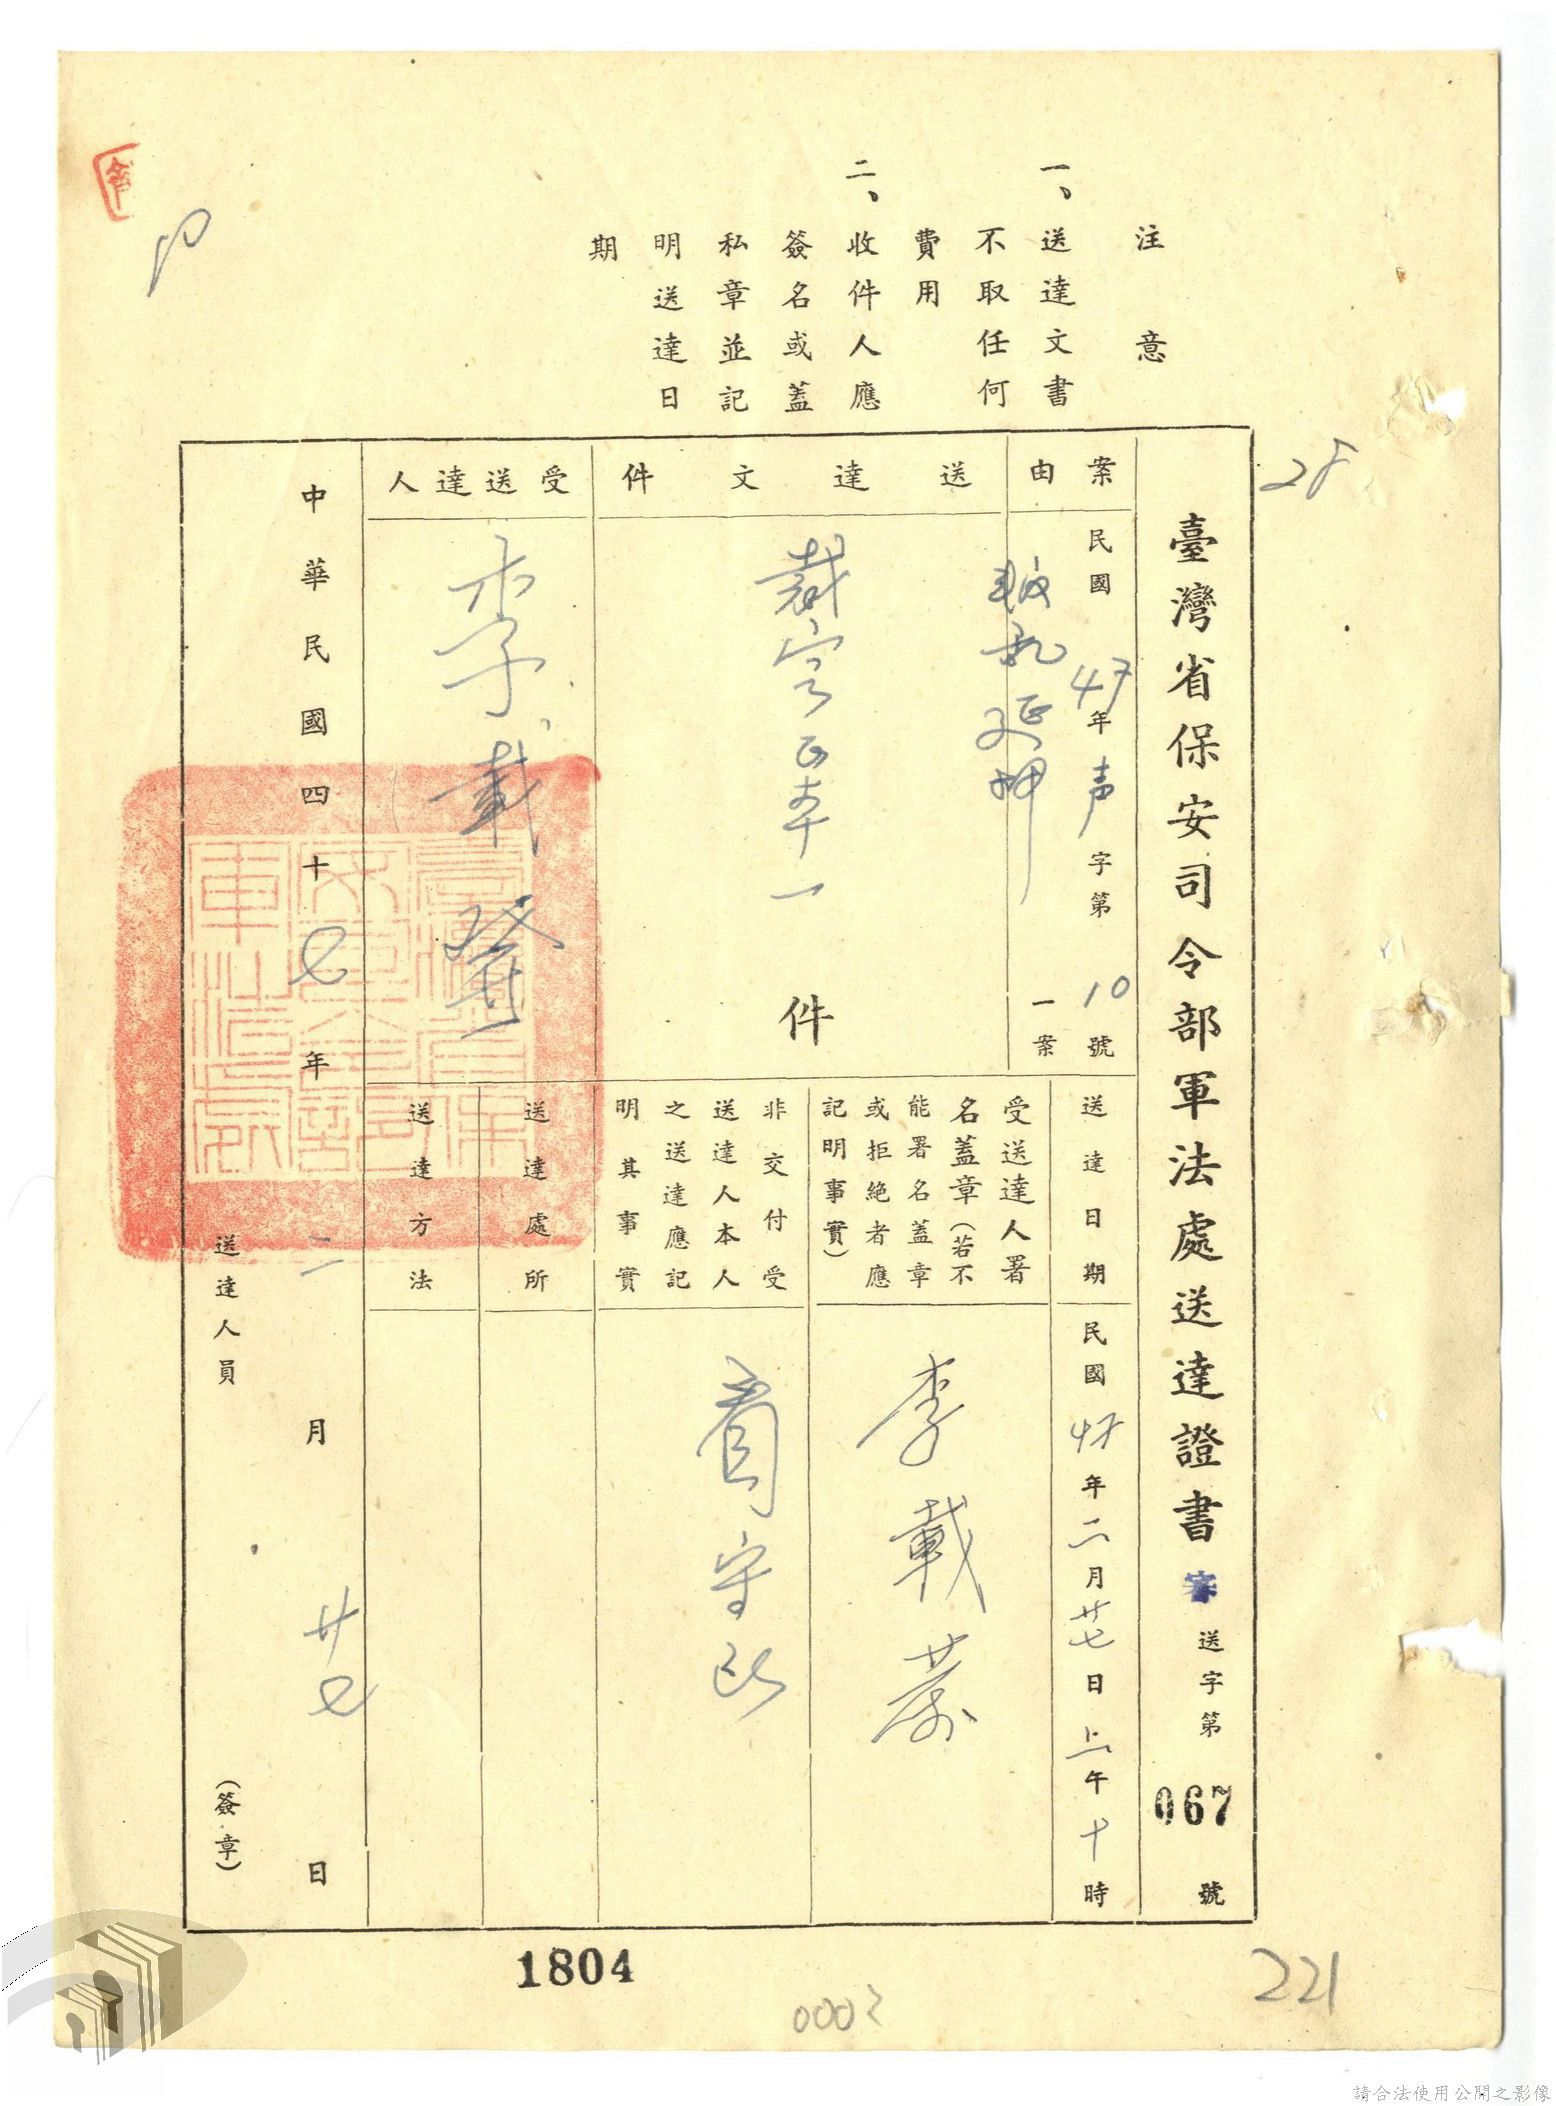 注意
一、送達文書
不取任何
費用
二、收件人應
簽名或蓋
私章並記
明送達日
期
臺灣省保安司令部軍法處送達證書 審送字第067號
案由
民國47年声字第10號
叛亂延押一案
送達文件
裁定正本一件
受送達人
李載
送達日期
民國47年二月廿七日上午十時
受送達人署
名蓋章(若不
能署名蓋章
或拒絕者應
記明事實)
李載
非交付受
送達人本人
之送達應記
明其事實
送達處所
送達方法
中華民國四十七年二月廿七日
送達人員(簽章)
28
1804
0003
221
請合法使用公開之影像